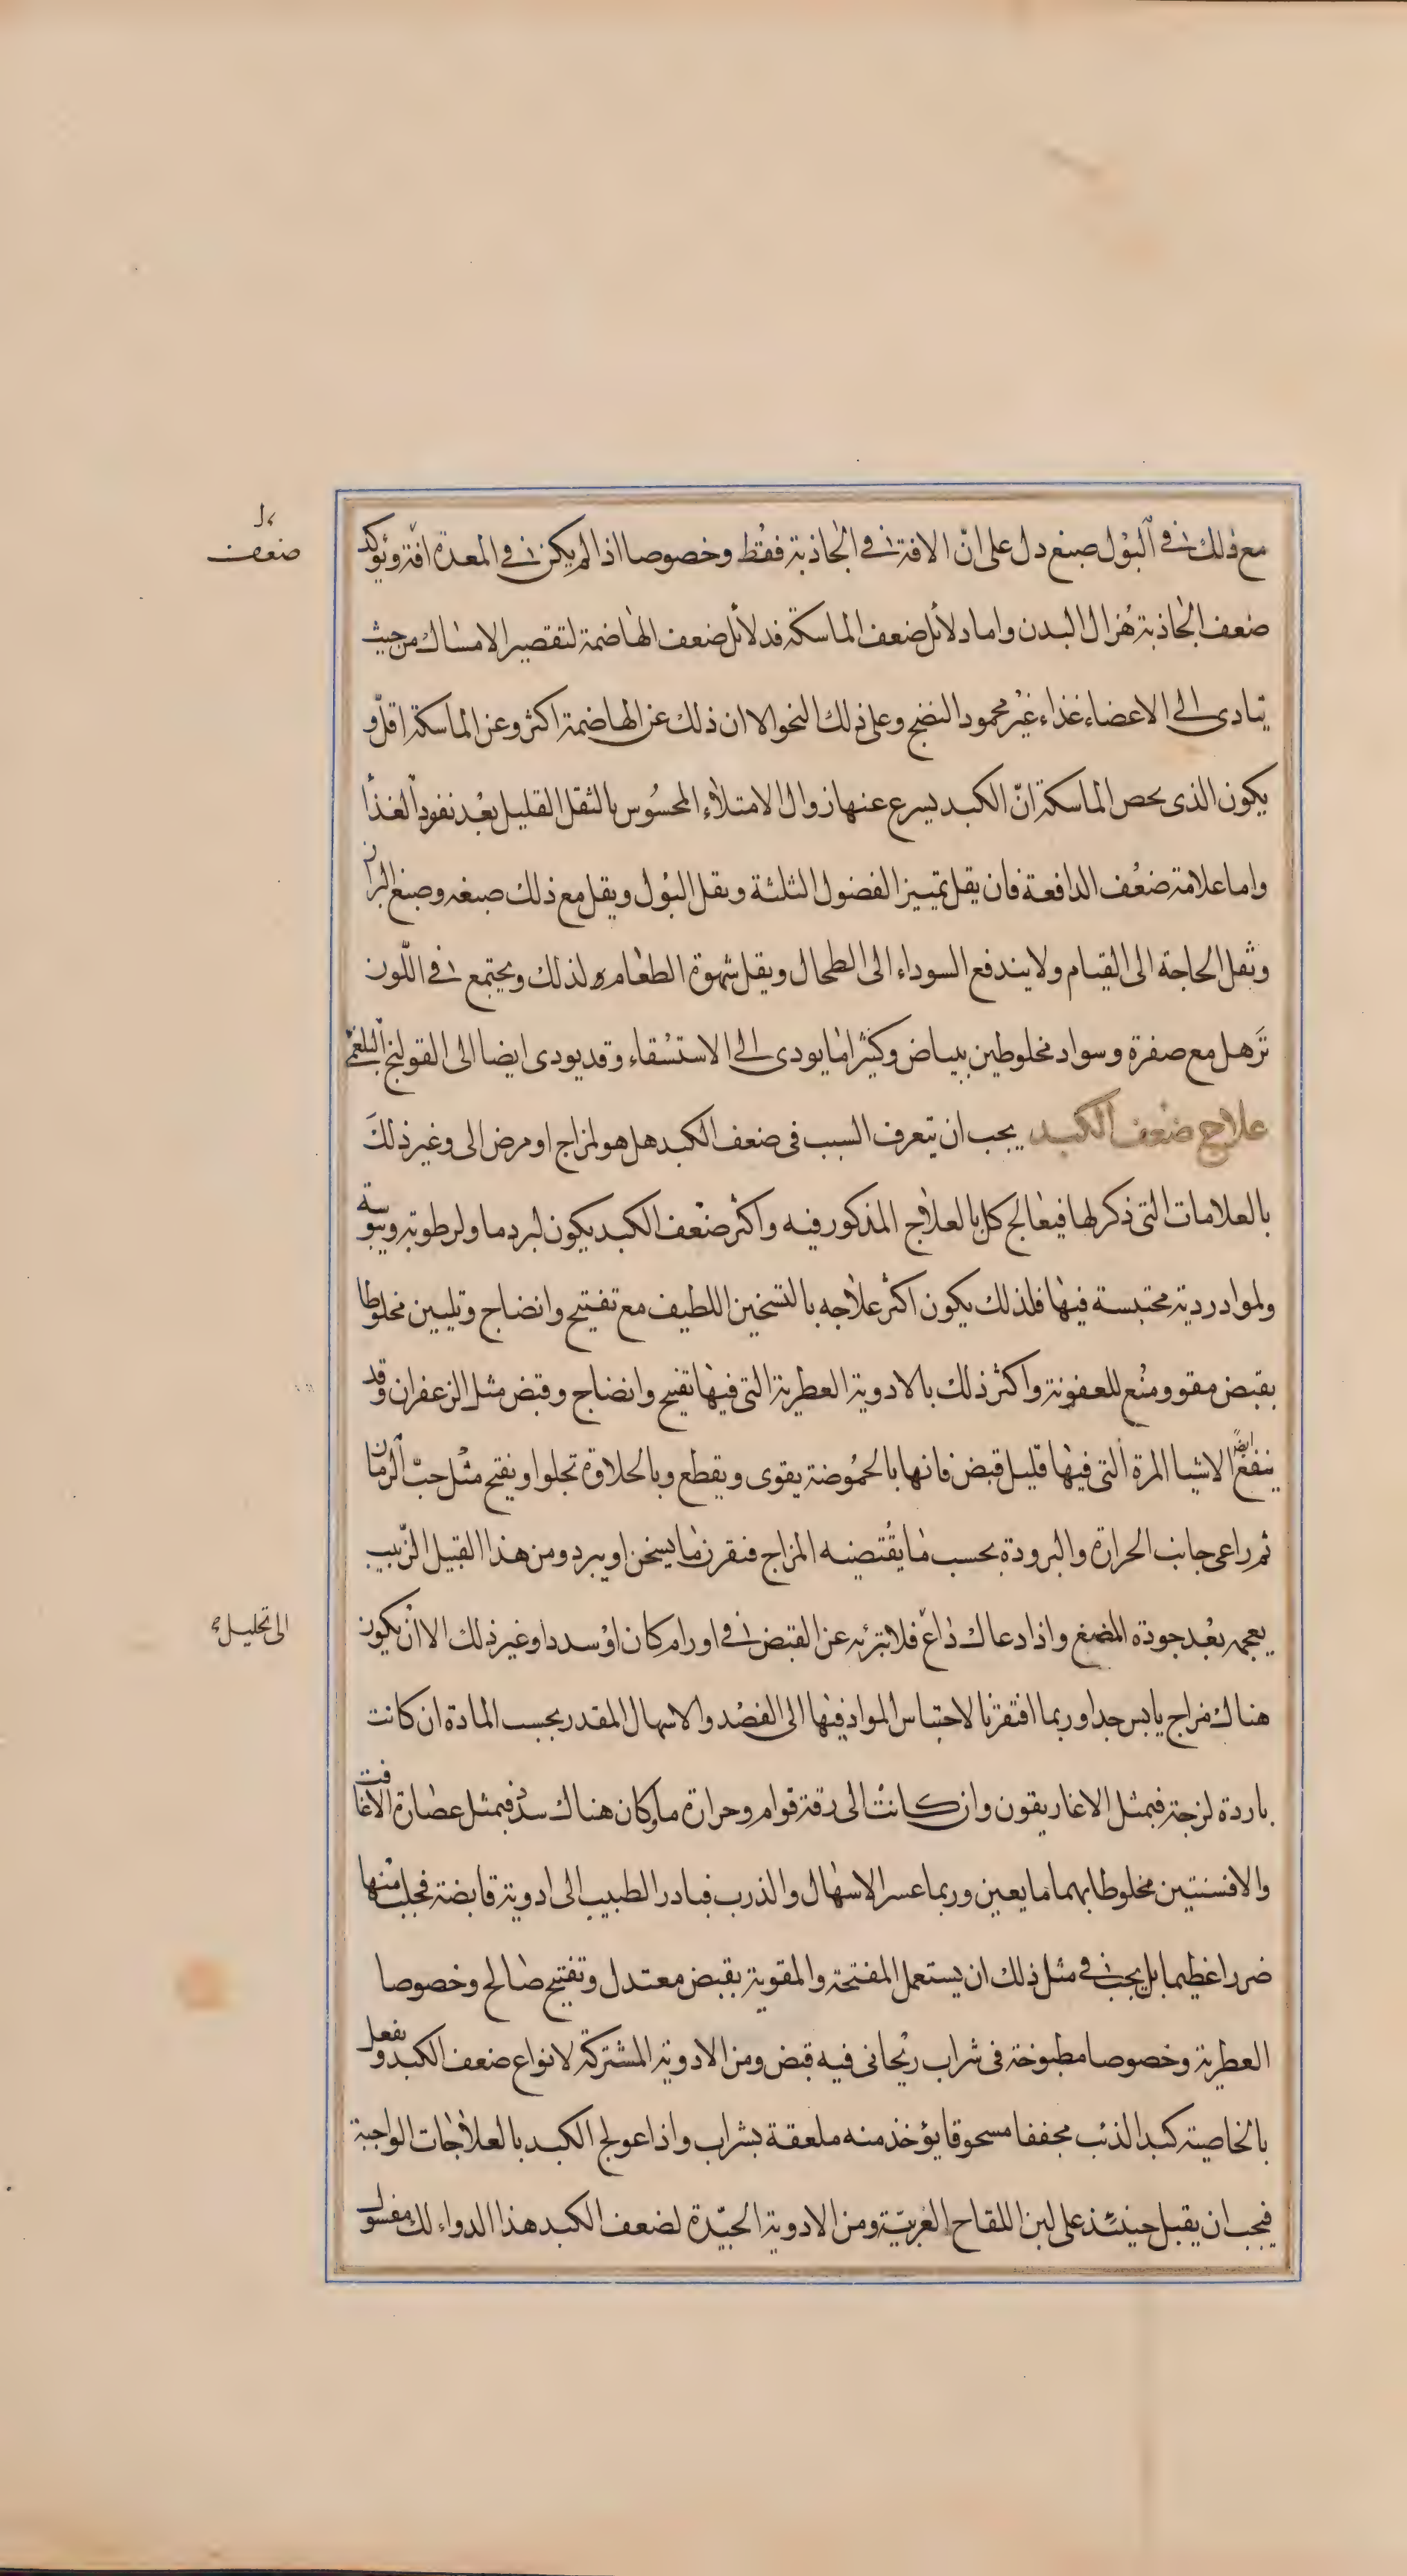 مع ذلك فى البول صبغ دل على انّ الافة فى الجاذبة فقط وخصوصا اذا لم يكن فى المعدة افة ويؤكد
ضعف
ضعف الجاذبة هزال البدن واما دلائل ضعف الماسكة فدلائل ضعف الهاضمة لتقصير الامساك من حيث
يتادى الى الاعضاء غذاء غير محمود النضج وعلى ذلك النحو الا ان ذلك عن الهاضمة اكثر وعن الماسكة اقل و
يكون الذى يخص الماسكة انّ الكبد يسرع عنها زوال الامتلاء المحسوس بالثقل القليل بعد نفوذ الغذا
واما علامة ضعف الدافعة فان يقل تمييز الفضول الثلثة ويقل البول ويقل مع ذلك صبغه وصبغ البراز
وتقل الحاجة الى القيام ولا يندفع السوداء الى الطحال ويقل شهوة الطعام لذلك ويجتمع فى اللون
ترهل مع صفرة وسواد مخلوطين ببياض وكثيرا ما يودى الى الاستسقاء وقد يودى ايضا الى القولنج البلغمى
علاج ضعف الكبد يجب ان يتعرف السبب فى ضعف الكبد هل هو لمزاج او مرض الى وغير ذلك
بالعلامات التى ذكر لها فيعالج كل بالعلاج المذكور فيه واكثر ضعف الكبد يكون لبرد ما ولرطوبة ويبوسة
ولمواد ردية محتبسة فيها فلذلك يكون اكثر علاجه بالتسخين اللطيف مع تفتيح وانضاج وتليين مخلوطا
بقبض مقو ومنع للعفونة واكثر ذلك بالادوية العطرية التى فيها تفيح وانضاج وقبض مثل الزعفران وقد
ينفع ايضا الاشيا المرة التى فيها قليل قبض فانها بالحموضة يقوى ويقطع وبالحلاوة تجلوا ويفتح مثل حبّ الرمان
ثم راعى جانب الحرارة والبرودة بحسب ما يقتضيه المزاج فنقرن ما يسخن او يبرد ومن هذا القبيل الزّبيب
بعجمه بعد جودة المضغ واذا دعاك داع فلا تبرئه عن القبض فى اورام كان او سدد او غير ذلك الا ان يكون
الى تحليل
هناك مزاج يابس جدا وربما افتقرنا لاحتباس المواد فيها الى الفصد والاسهال المقدر بحسب المادة ان كانت
باردة لزجة فبمثل الاغاريقون وان كانت الى رقة قوام وحرارة ما وكان هناك سدد فبمثل عصارة الاغافت
والافسنتين مخلوطا بهما ما يعين وربما عسر الاسهال والذرب فبادر الطبيب الى ادوية قابضة فجلب منها
ضررا عظيما بل يجب فى مثل ذلك ان يستعمل المفتحة والمقوية بقبض معتدل وتفتيح صالح وخصوصا
العطرية وخصوصا مطبوخة فى شراب ريحانى فيه قبض ومن الادوية المشتركة لانواع ضعف الكبد ويفعل
بالخاصية كبد الذئب مجففا مسحوقا يؤخذ منه ملعقة بشراب واذا عولج الكبد بالعلاجات الواجبة
فيجب ان يقبل حينئذ على لبن اللقاح العربيّة ومن الادوية الجيّدة لضعف الكبد هذا الدواء لك مغسول